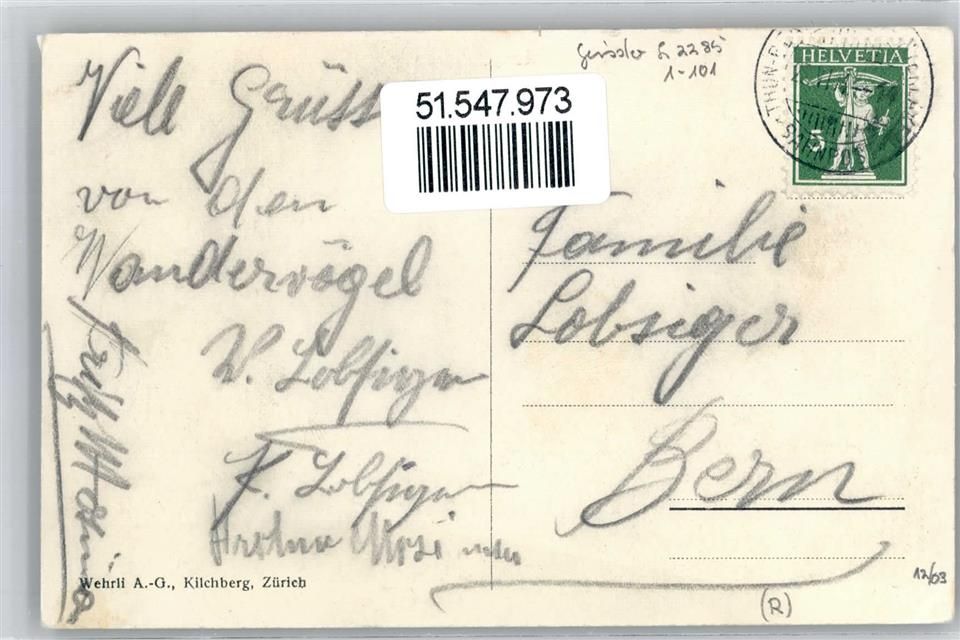 Viele Grüss
von den
Wandervögel
W. Lobsiger
F. Lobsiger
Fritz
Wehrli A.-G., Kilchberg, Zürich
51.547.973
2285
1-101
HELVETIA
5
THUN-B
Familie
Lobsiger
Bern
12/03
(R)